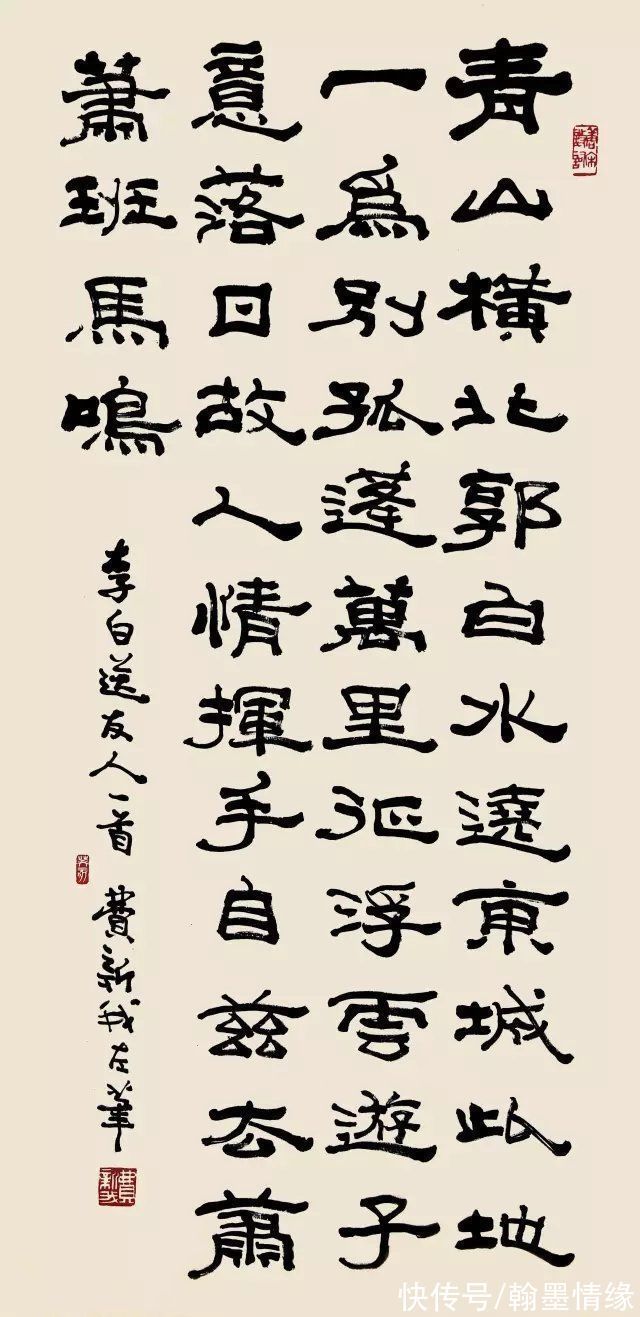 青山橫北郭白水遶東城此地
一爲別孤蓬萬里征浮雲遊子
意落日故人情揮手自茲去蕭
蕭班馬鳴
李白送友人一首 費新我左筆
費新我
快传号/翰墨情缘